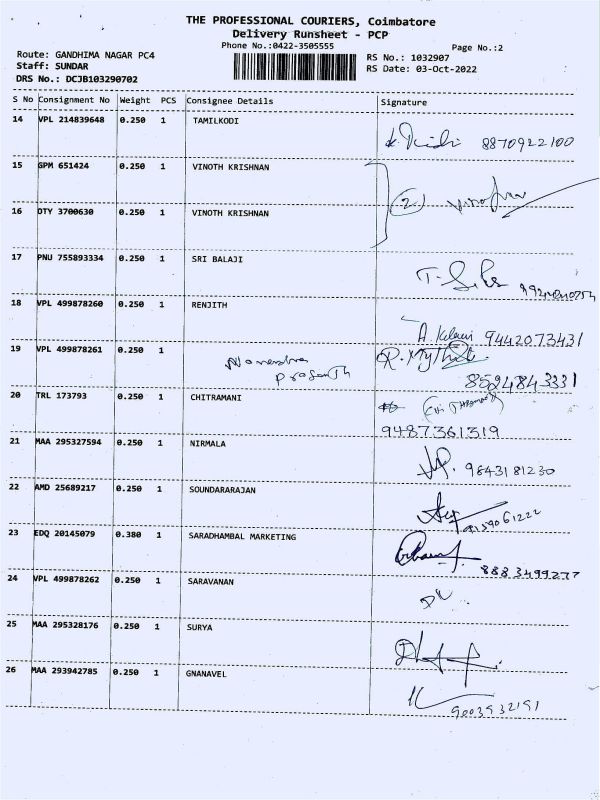 THE PROFESSIONAL COURIERS, Coimbatore
Delivery Runsheet - PCP
Phone No.:0422-3505555
Page No.:2
Route: GANDHIMA NAGAR PC4
Staff: SUNDAR
DRS No.: DCJB103290702
RS No.: 1032907
RS Date: 03-Oct-2022
S No Consignment No Weight PCS Consignee Details Signature
14 VPL 214839648 0.250 1 TAMILKODI
8870922100
15 GPM 651424 0.250 1 VINOTH KRISHNAN
(2)
16 DTY 3700630 0.250 1 VINOTH KRISHNAN
17 PNU 755893334 0.250 1 SRI BALAJI
18 VPL 499878260 0.250 1 RENJITH
9442073431
19 VPL 499878261 0.250 1
8524843331
20 TRL 173793 0.250 1 CHITRAMANI
9487361319
21 MAA 295327594 0.250 1 NIRMALA
9843181230
22 AMD 25689217 0.250 1 SOUNDARARAJAN
9159061222
23 EDQ 20145079 0.380 1 SARADHAMBAL MARKETING
8883499277
24 VPL 499878262 0.250 1 SARAVANAN
25 MAA 295328176 0.250 1 SURYA
26 MAA 293942785 0.250 1 GNANAVEL
9003932191